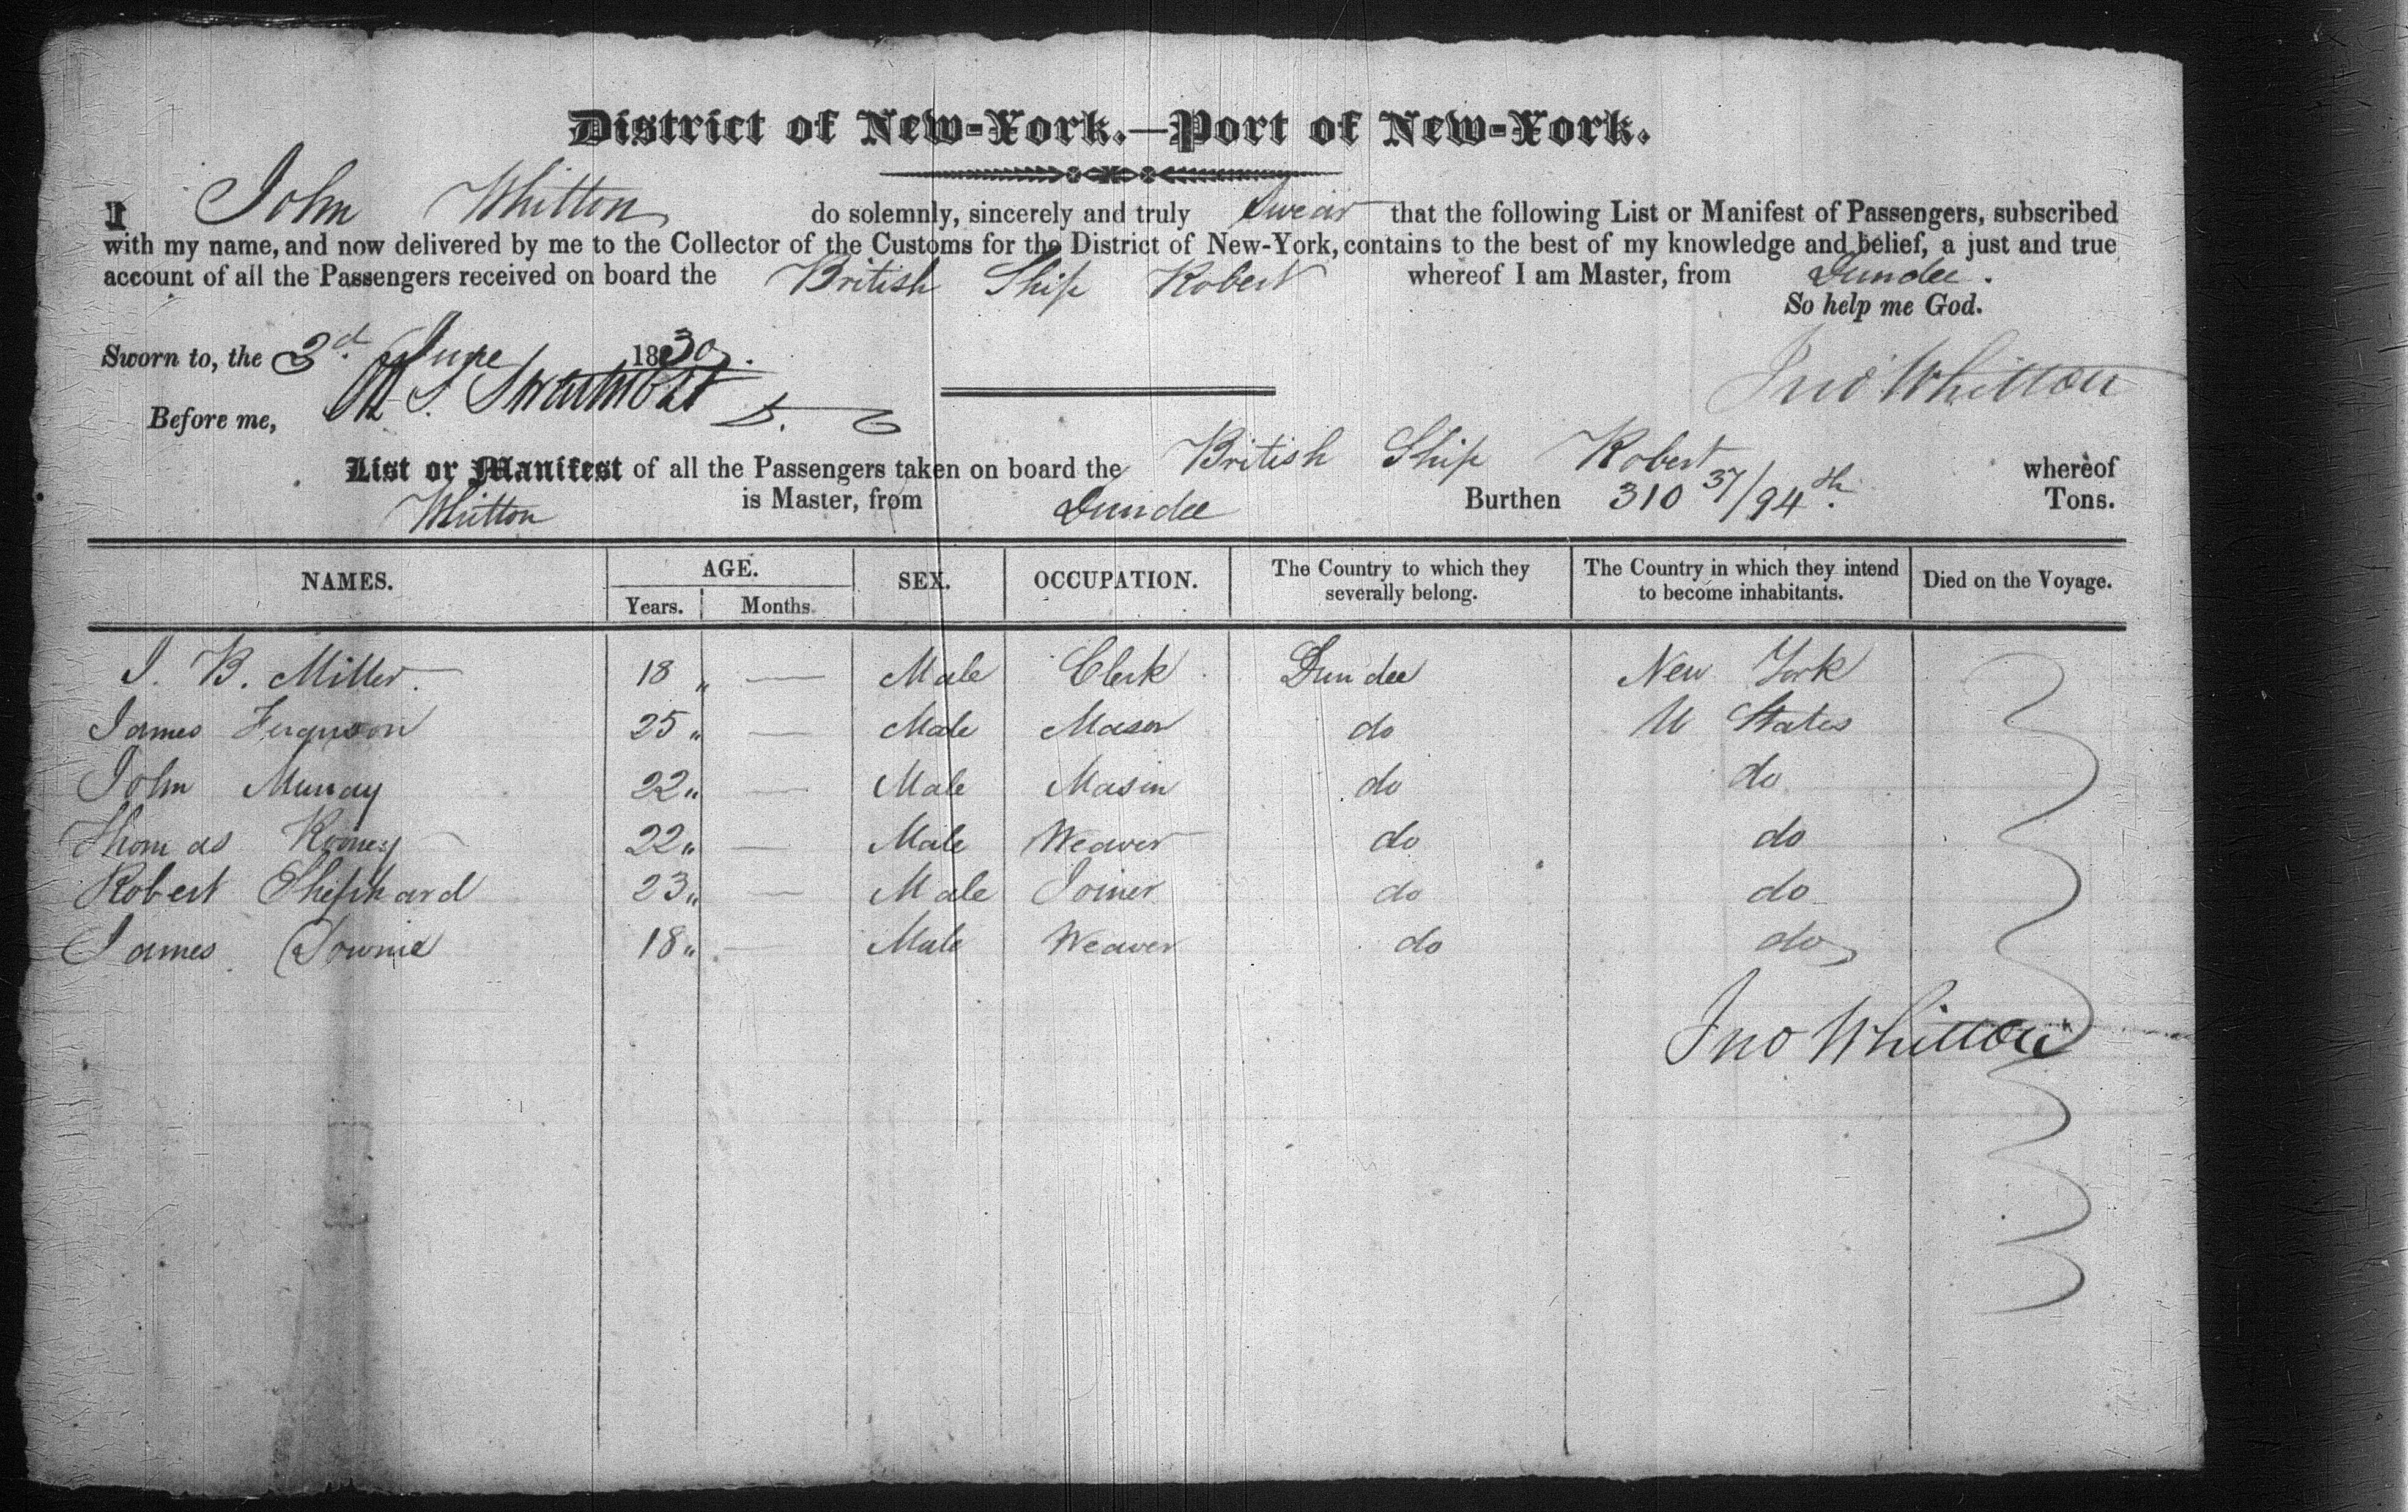 District of New-York.—Port of New-York.
I John Whitton do solemnly, sincerely and truly Swear that the following List or Manifest of Passengers, subscribed
with my name, and now delivered by me to the Collector of the Customs for the District of New-York, contains to the best of my knowledge and belief, a just and true
account of all the Passengers received on board the British Ship Robert whereof I am Master, from Dundee.
So help me God.
Sworn to, the 3d. June 1830.
Jno Whitton
Before me,
List or Manifest of all the Passengers taken on board the British Ship Robert whereof
Whitton is Master, from Dundee Burthen 310 37/94th. Tons.
NAMES. AGE. SEX. OCCUPATION. The Country to which they severally belong. The Country in which they intend to become inhabitants. Died on the Voyage.
Years. Months
J. B. Miller. 18 " — Male Clerk Dundee New York
James Ferguson 25 " — Male Mason do U States
John Murray 22 " — Male Mason do do
Thomas Rooney 22 " — Male Weaver do do
Robert Shephard 23 " — Male Joiner do do
James Downie 18 " — Male Weaver do do
Jno Whitton